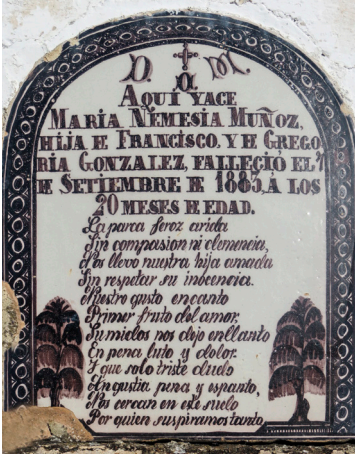 D. M.
A
AQUI YACE
MARIA NEMESIA MUÑOZ,
HIJA DE FRANCISCO, Y DE GREGO
RIA GONZALEZ, FALLEÇIÓ EL
DE SETIEMBRE DE 1883, Á LOS
20 MESES DE EDAD.
La parca feroz avida
Sin compasion ni clemencia,
Nos llevo nuestra hija amada
Sin respetar su inocencia.
Nuestro gusto encanto
Primer fruto del amor.
Su mielos nos dejo en llanto
En pena luto y dolor.
Y que solo triste duelo
Angustia pena y espanto,
Nos cercan en este suelo
Por quien suspiramos tanto